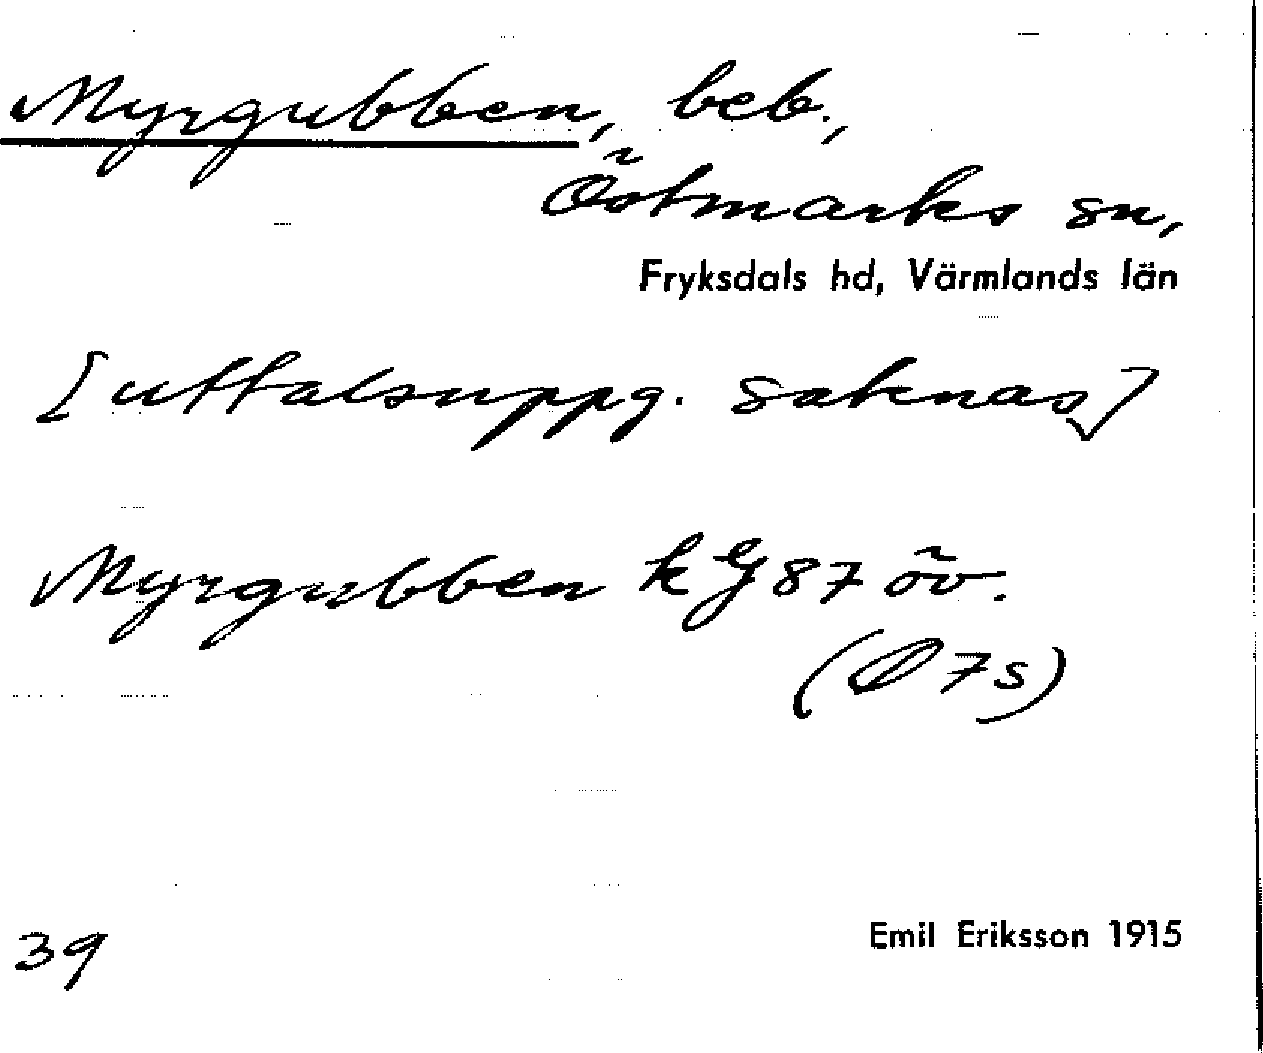 Myrgubben, beb.,
Östmarks sn,
Fryksdals hd, Värmlands län
[uttalsuppg. saknas]
Myrgubben k EJ 87 öv.
(O 7s)
39
Emil Eriksson 1915